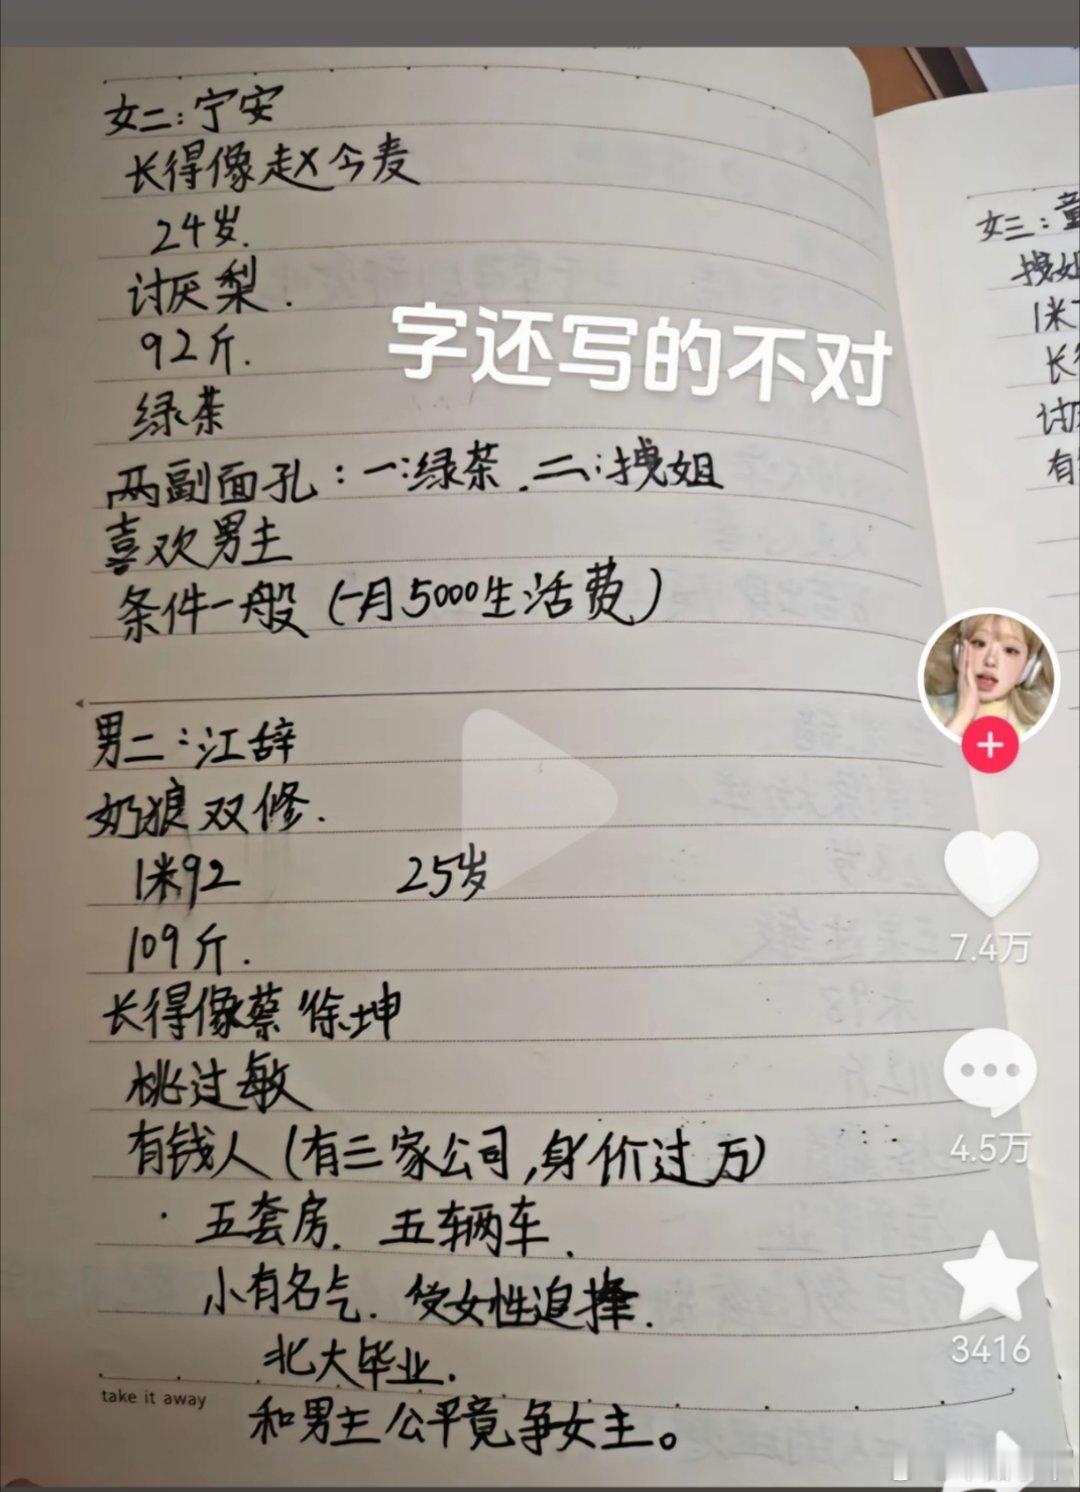 女二：宁安
长得像赵今麦
24岁.
讨厌梨.
92斤.
绿茶
两副面孔：一:绿茶.二:拽姐
喜欢男主
条件一般（一月5000生活费）
男二：江辞
奶狼双修.
1米92 25岁
109斤.
长得像蔡徐坤
桃过敏
有钱人（有三家公司,身价过万）
·五套房. 五辆车.
小有名气. 受女性追捧.
北大毕业.
take it away
和男主公平竞争女主。
女三：童
拽姐
1米
长
讨
有
字还写的不对
7.4万
4.5万
3416